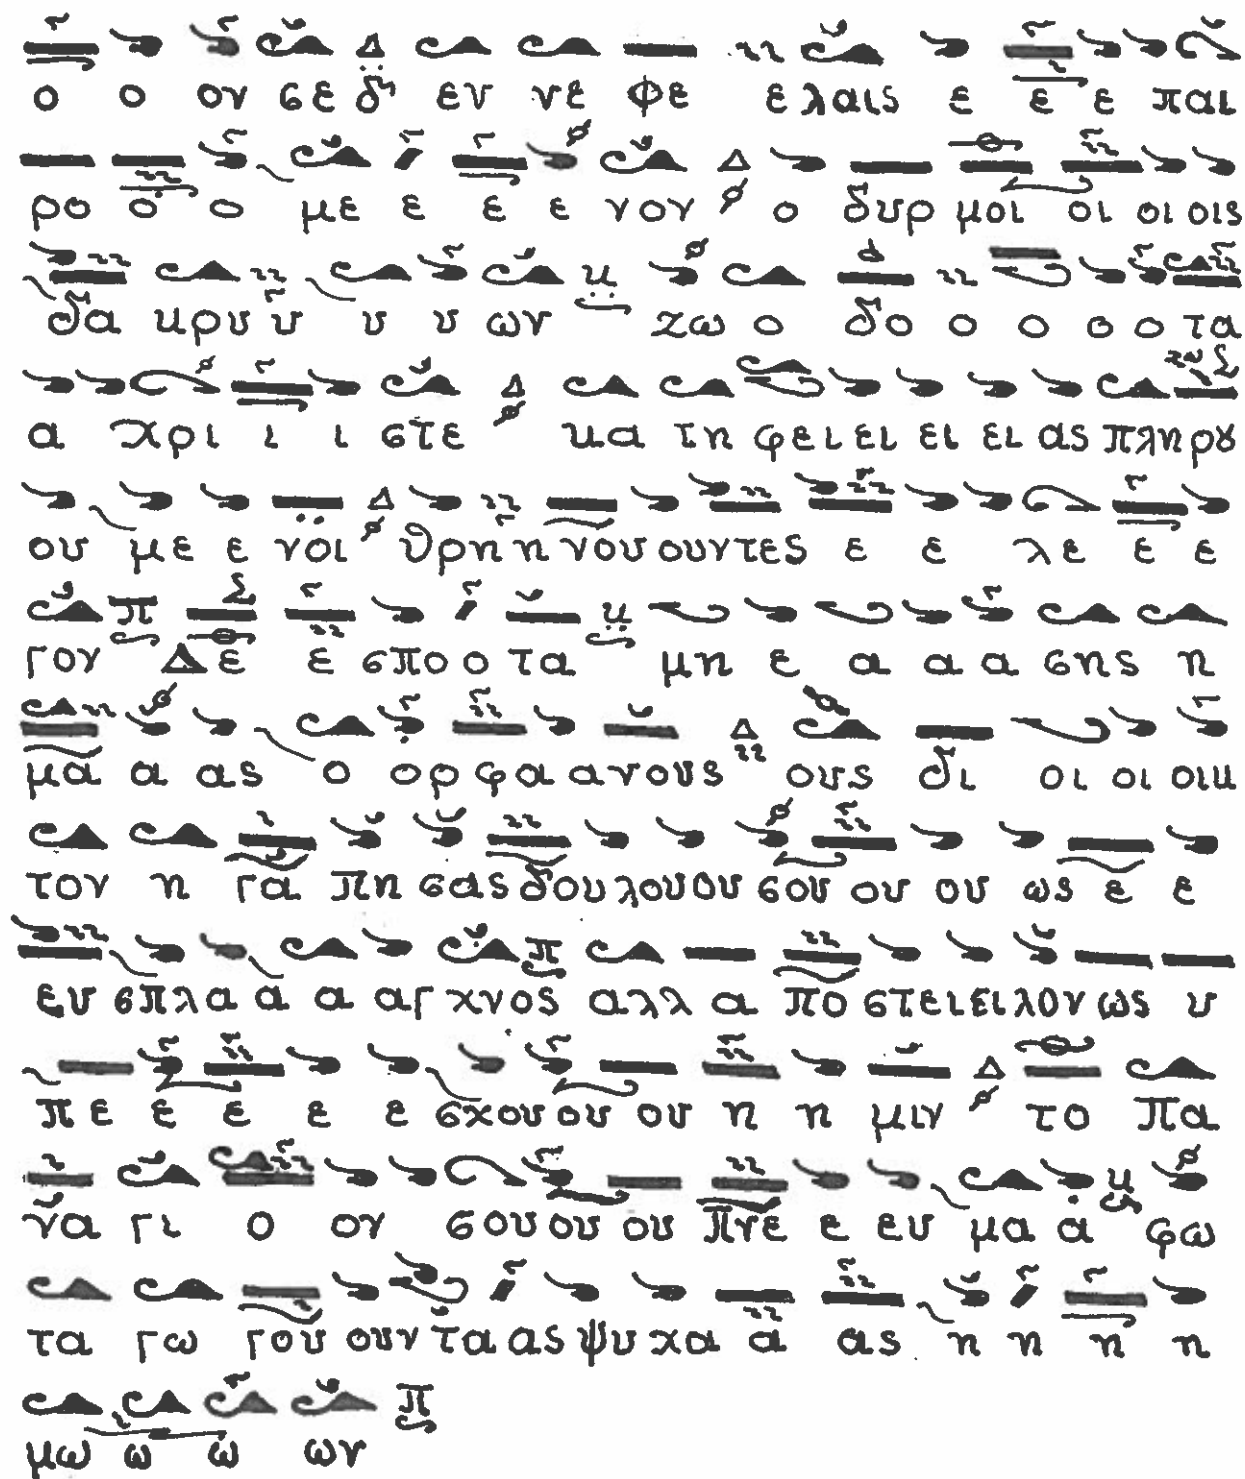 ο ο ον σε δη εν νε φε ε λαις ε ε ε παι
ρο ο ο με ε ε ε νον ο δυρ μοι οι οι οις
δα κρυ υ υ υ ων ζω ο δο ο ο ο ο τα
α χρι ι ι στε κα τη φει ει ει ει ας πλη ρου
ου με ε νοι θρη η νου ουντες ε ε λε ε ε
γον Δε ε σπο ο τα μη ε α α α σης η
μα α ας ο ορ φα α νους ους δι οι οι οικ
τον η γα πη σας δου λου ου σου ου ου ως ε ε
ευ σπλα α α α αγ χνος αλλ α πο στει ει λον ως υ
πε ε ε ε ε σχου ου ου η η μιν το πα
να γι ο ον σου ου ου πνε ε ευ μα α φω
τα γω γου ουν τα ας ψυ χα α ας η η η η
μω ω ω ων